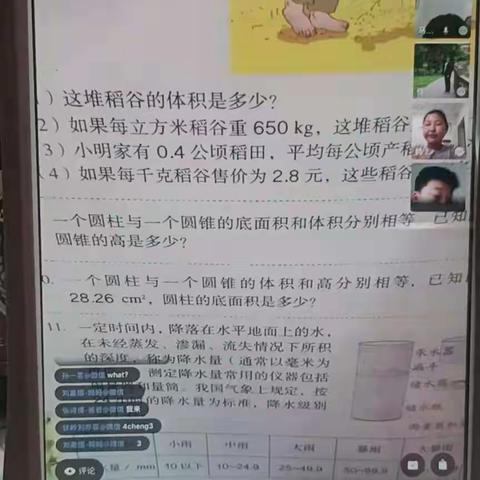 ）这堆稻谷的体积是多少？
2）如果每立方米稻谷重 650 kg，这堆稻谷
3）小明家有 0.4 公顷稻田，平均每公顷产稻
4）如果每千克稻谷售价为 2.8 元，这些稻谷
一个圆柱与一个圆锥的底面积和体积分别相等，已知
圆锥的高是多少？
0. 一个圆柱与一个圆锥的体积和高分别相等，已知
28.26 cm²，圆柱的底面积是多少？
11. 一定时间内，降落在水平地面上的水，
在未经蒸发、渗漏、流失情况下所积
的深度，称为降水量（通常以毫米为
测定降水量常用的仪器包括
和量筒。我国气象上规定，按
的降水量为标准，降水级别
承水器
漏斗
储水瓶
what?
我来
4cheng3
3
小雨 中雨 大雨 暴雨
量 / mm 10 以下 10~24.9 25~49.9 50~99.9
评论